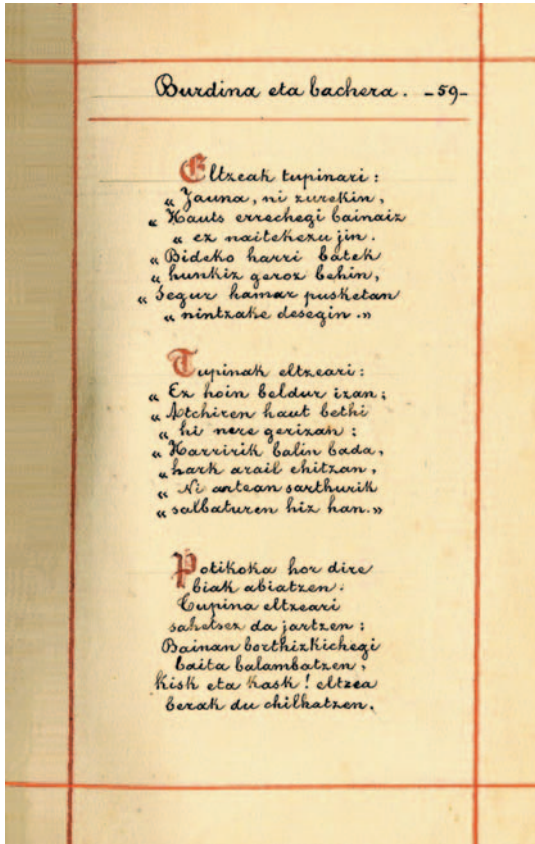 Burdina eta bachera. -59-
Eltzeak tupinari:
"Jauna, ni zurekin,
"Hauts errechegi bainaiz
"ez naitekezu jin.
"Bideko harri batek
"hunkiz geroz behin,
"Segur hamar pusketan
"nintzake desegin."
Tupinak eltzeari:
"Ez hoin beldur izan;
"Atchiren haut bethi
"hi nere gerizan:
"Harririk balin bada,
"hark arail chitzan,
"Ni artean sarthurik
"salbaturen hiz han."
Potikoka hor dire
biak abiatzen.
Tupina eltzeari
sahetsez da jartzen;
Bainan borthizkichegi
baita balambatzen,
Kisk eta kask! eltzea
berak du chilkatzen.